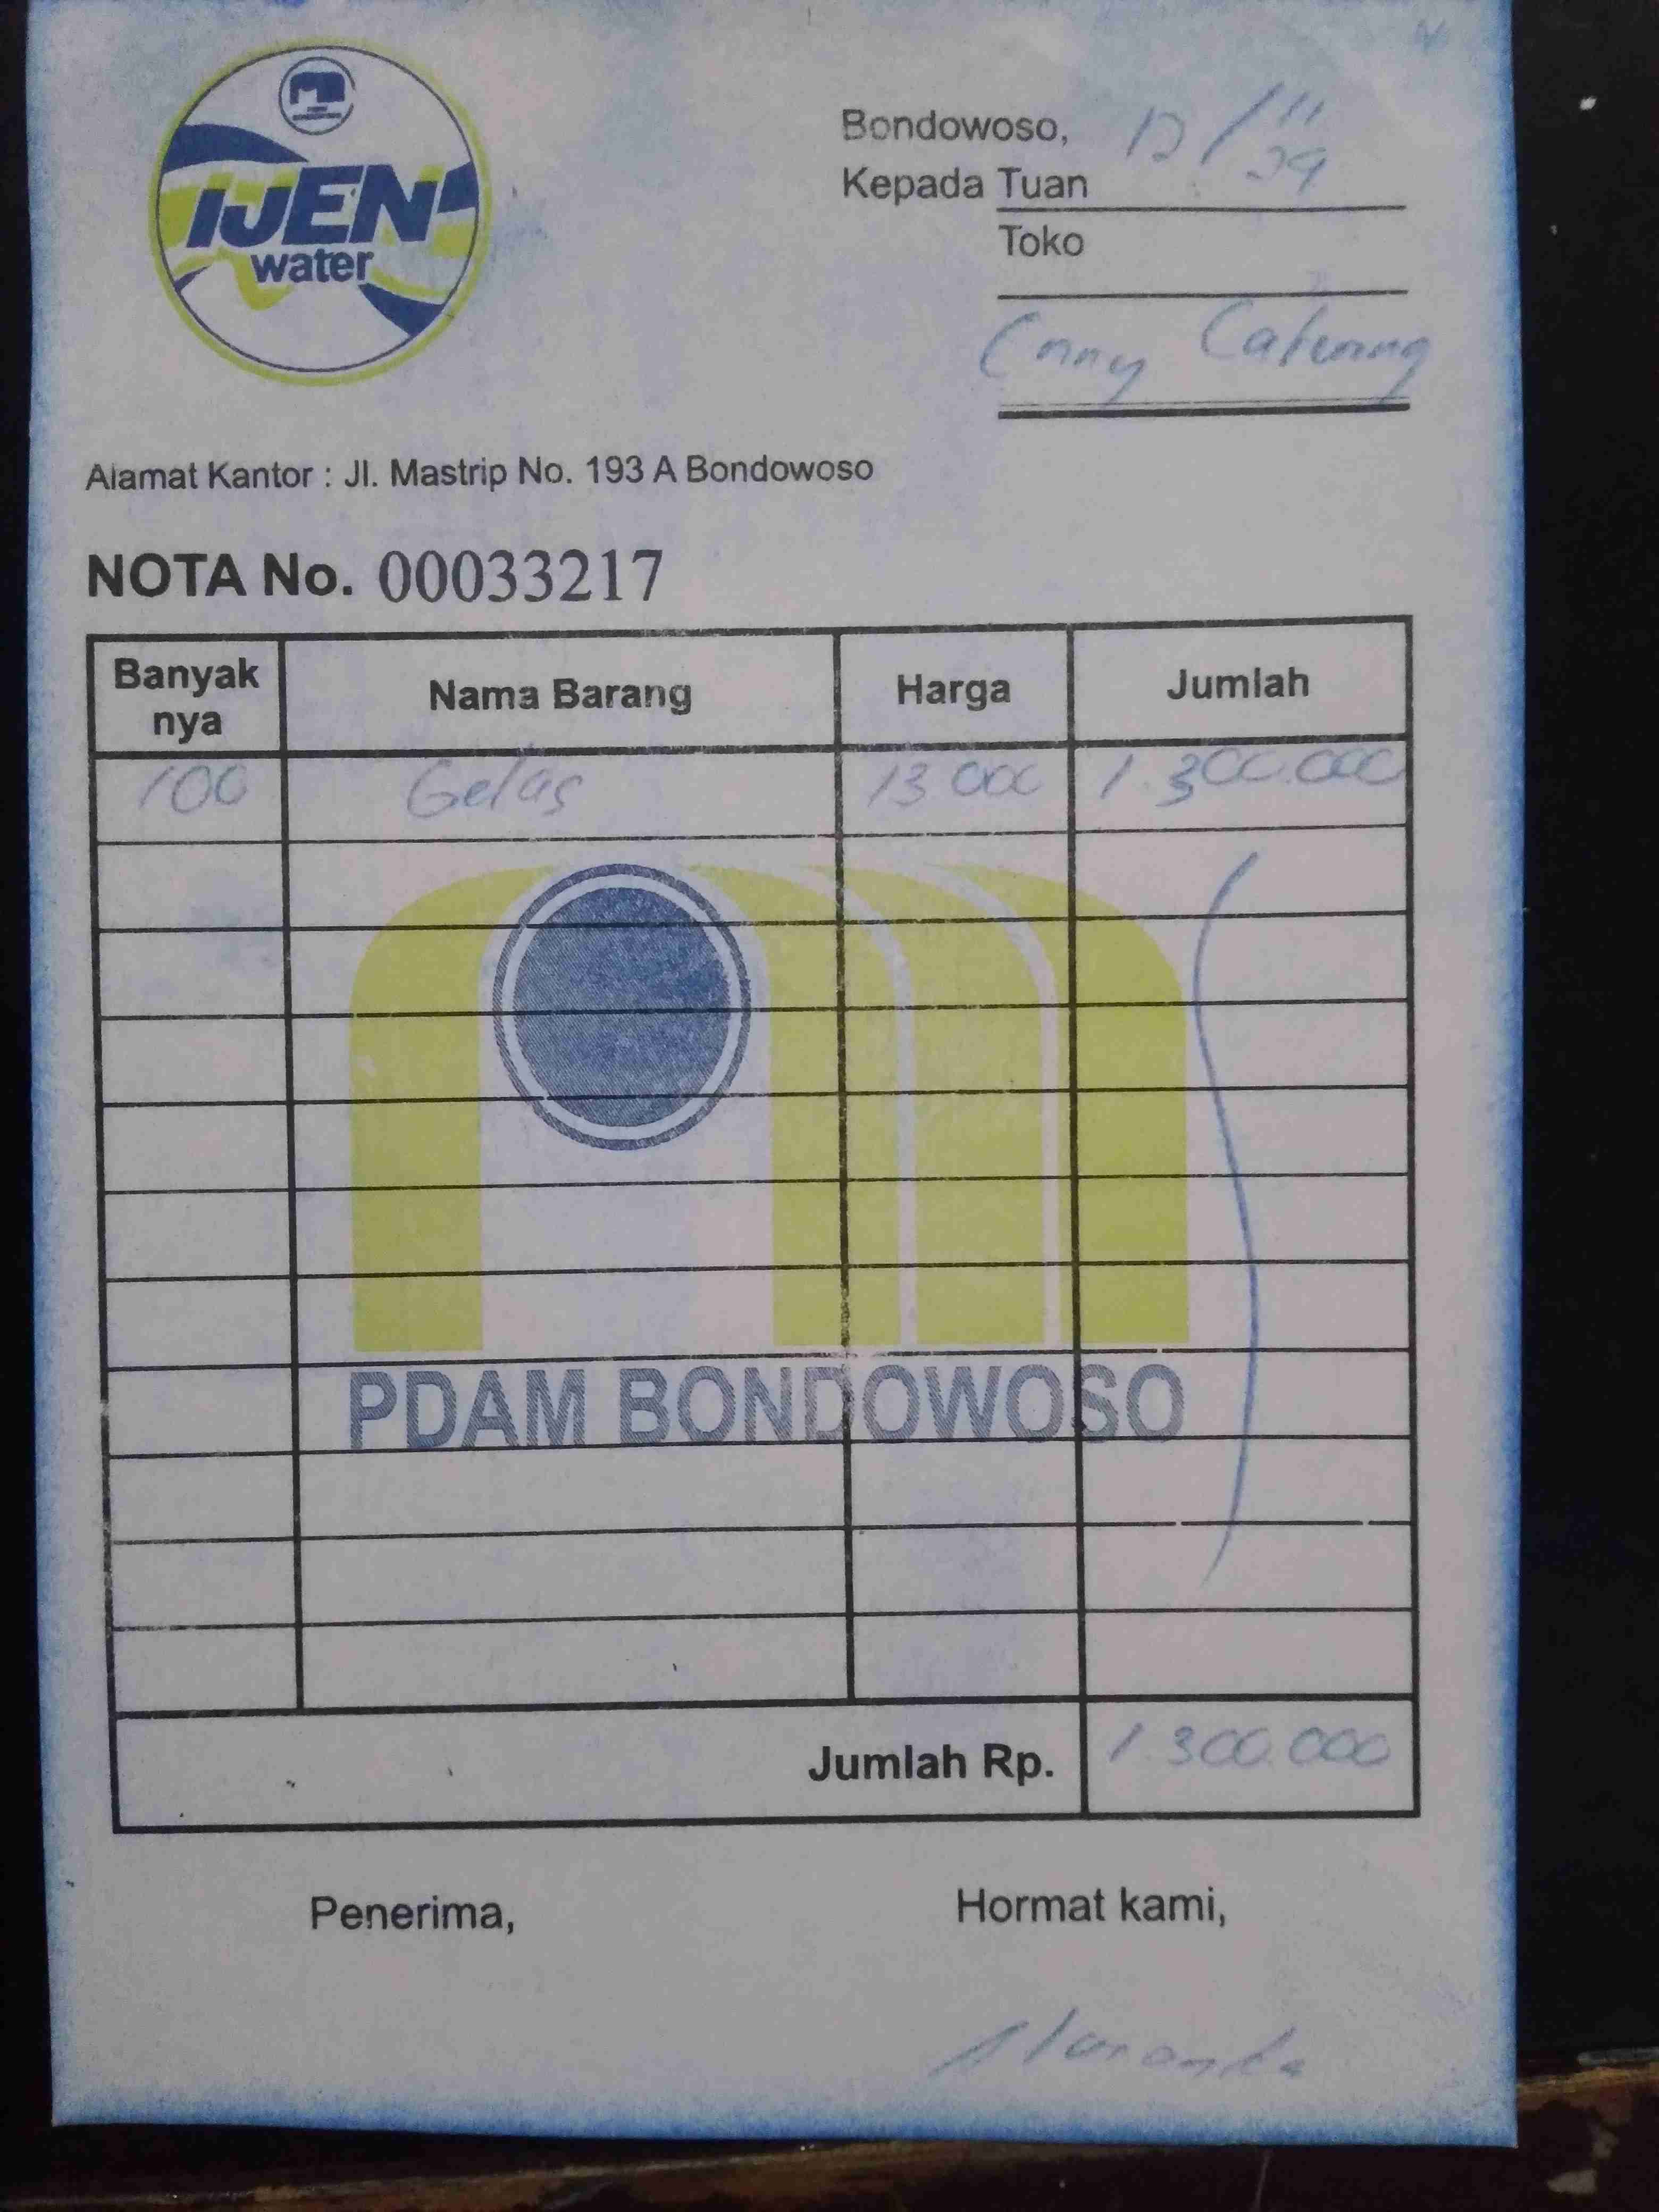 IJEN
water
Bondowoso, 12/11
Kepada Tuan
Toko
Enny Catering
Alamat Kantor : Jl. Mastrip No. 193 A Bondowoso
NOTA No. 00033217
Banyak nya Nama Barang Harga Jumlah
100 Gelas 13.000 1.300.000
PDAM BONDOWOSO
Jumlah Rp. 1.300.000
Penerima, Hormat kami,